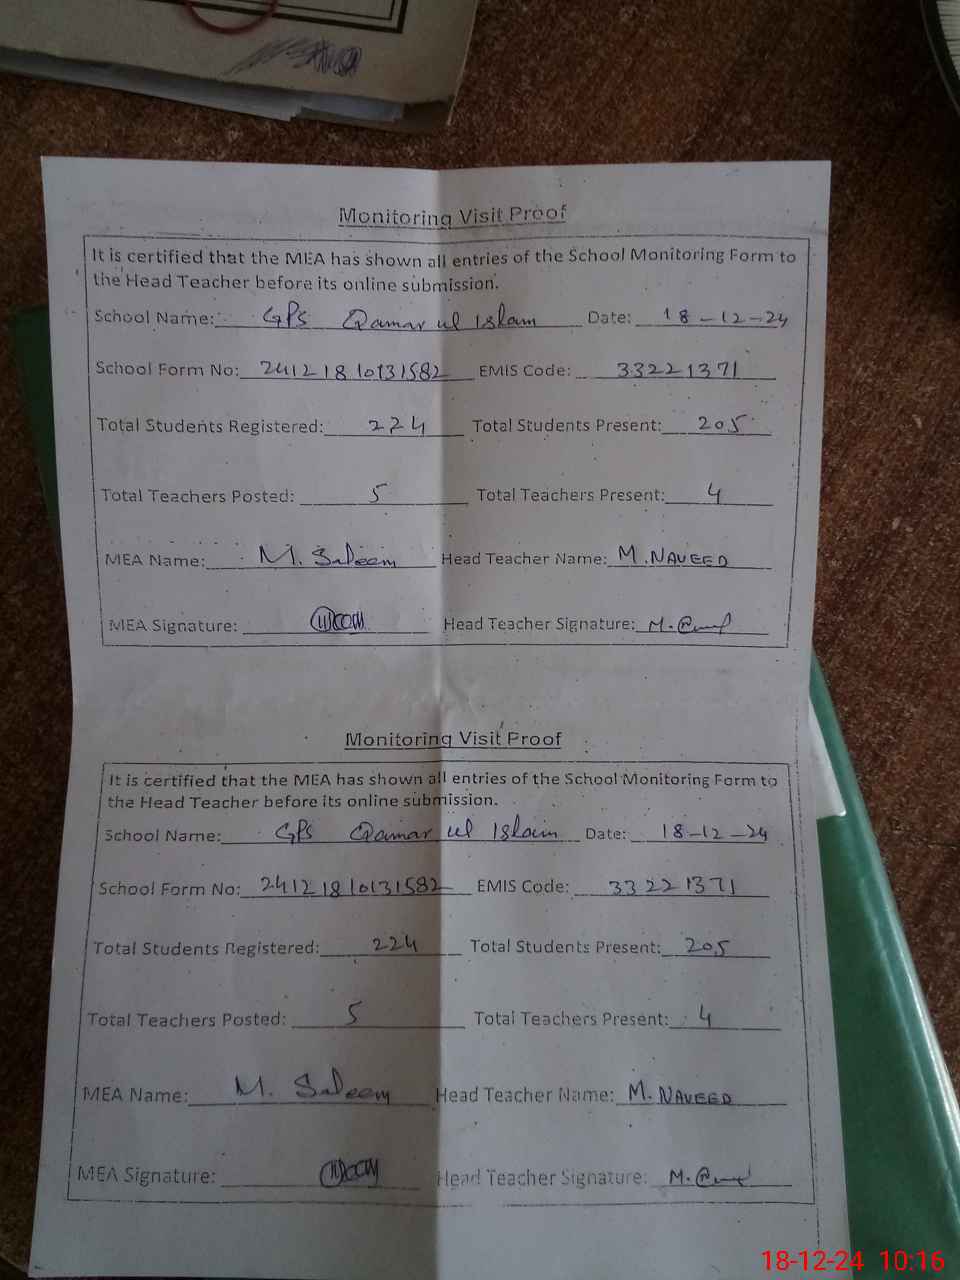 Monitoring Visit Proof
It is certified that the MEA has shown all entries of the School Monitoring Form to
the Head Teacher before its online submission.
School Name: GPS Qamar ul Islam Date: 18-12-24
School Form No: 24121810131582 EMIS Code: 33221371
Total Students Registered: 224 Total Students Present: 205
Total Teachers Posted: 5 Total Teachers Present: 4
MEA Name: M. Saleem Head Teacher Name: M. NAVEED
MEA Signature: Head Teacher Signature: M.
Monitoring Visit Proof
It is certified that the MEA has shown all entries of the School Monitoring Form to
the Head Teacher before its online submission.
School Name: GPS Qamar ul Islam Date: 18-12-24
School Form No: 24121810131582 EMIS Code: 33221371
Total Students Registered: 224 Total Students Present: 205
Total Teachers Posted: 5 Total Teachers Present: 4
MEA Name: M. Saleem Head Teacher Name: M. NAVEED
MEA Signature: Head Teacher Signature: M.
18-12-24 10:16